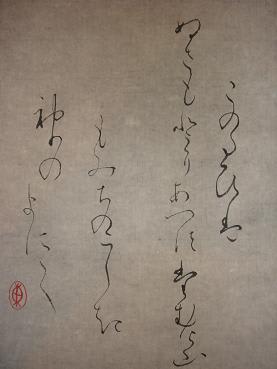 このたひは
ぬさもとりあへすたむけ山
もみちのにしき
神のまに〱